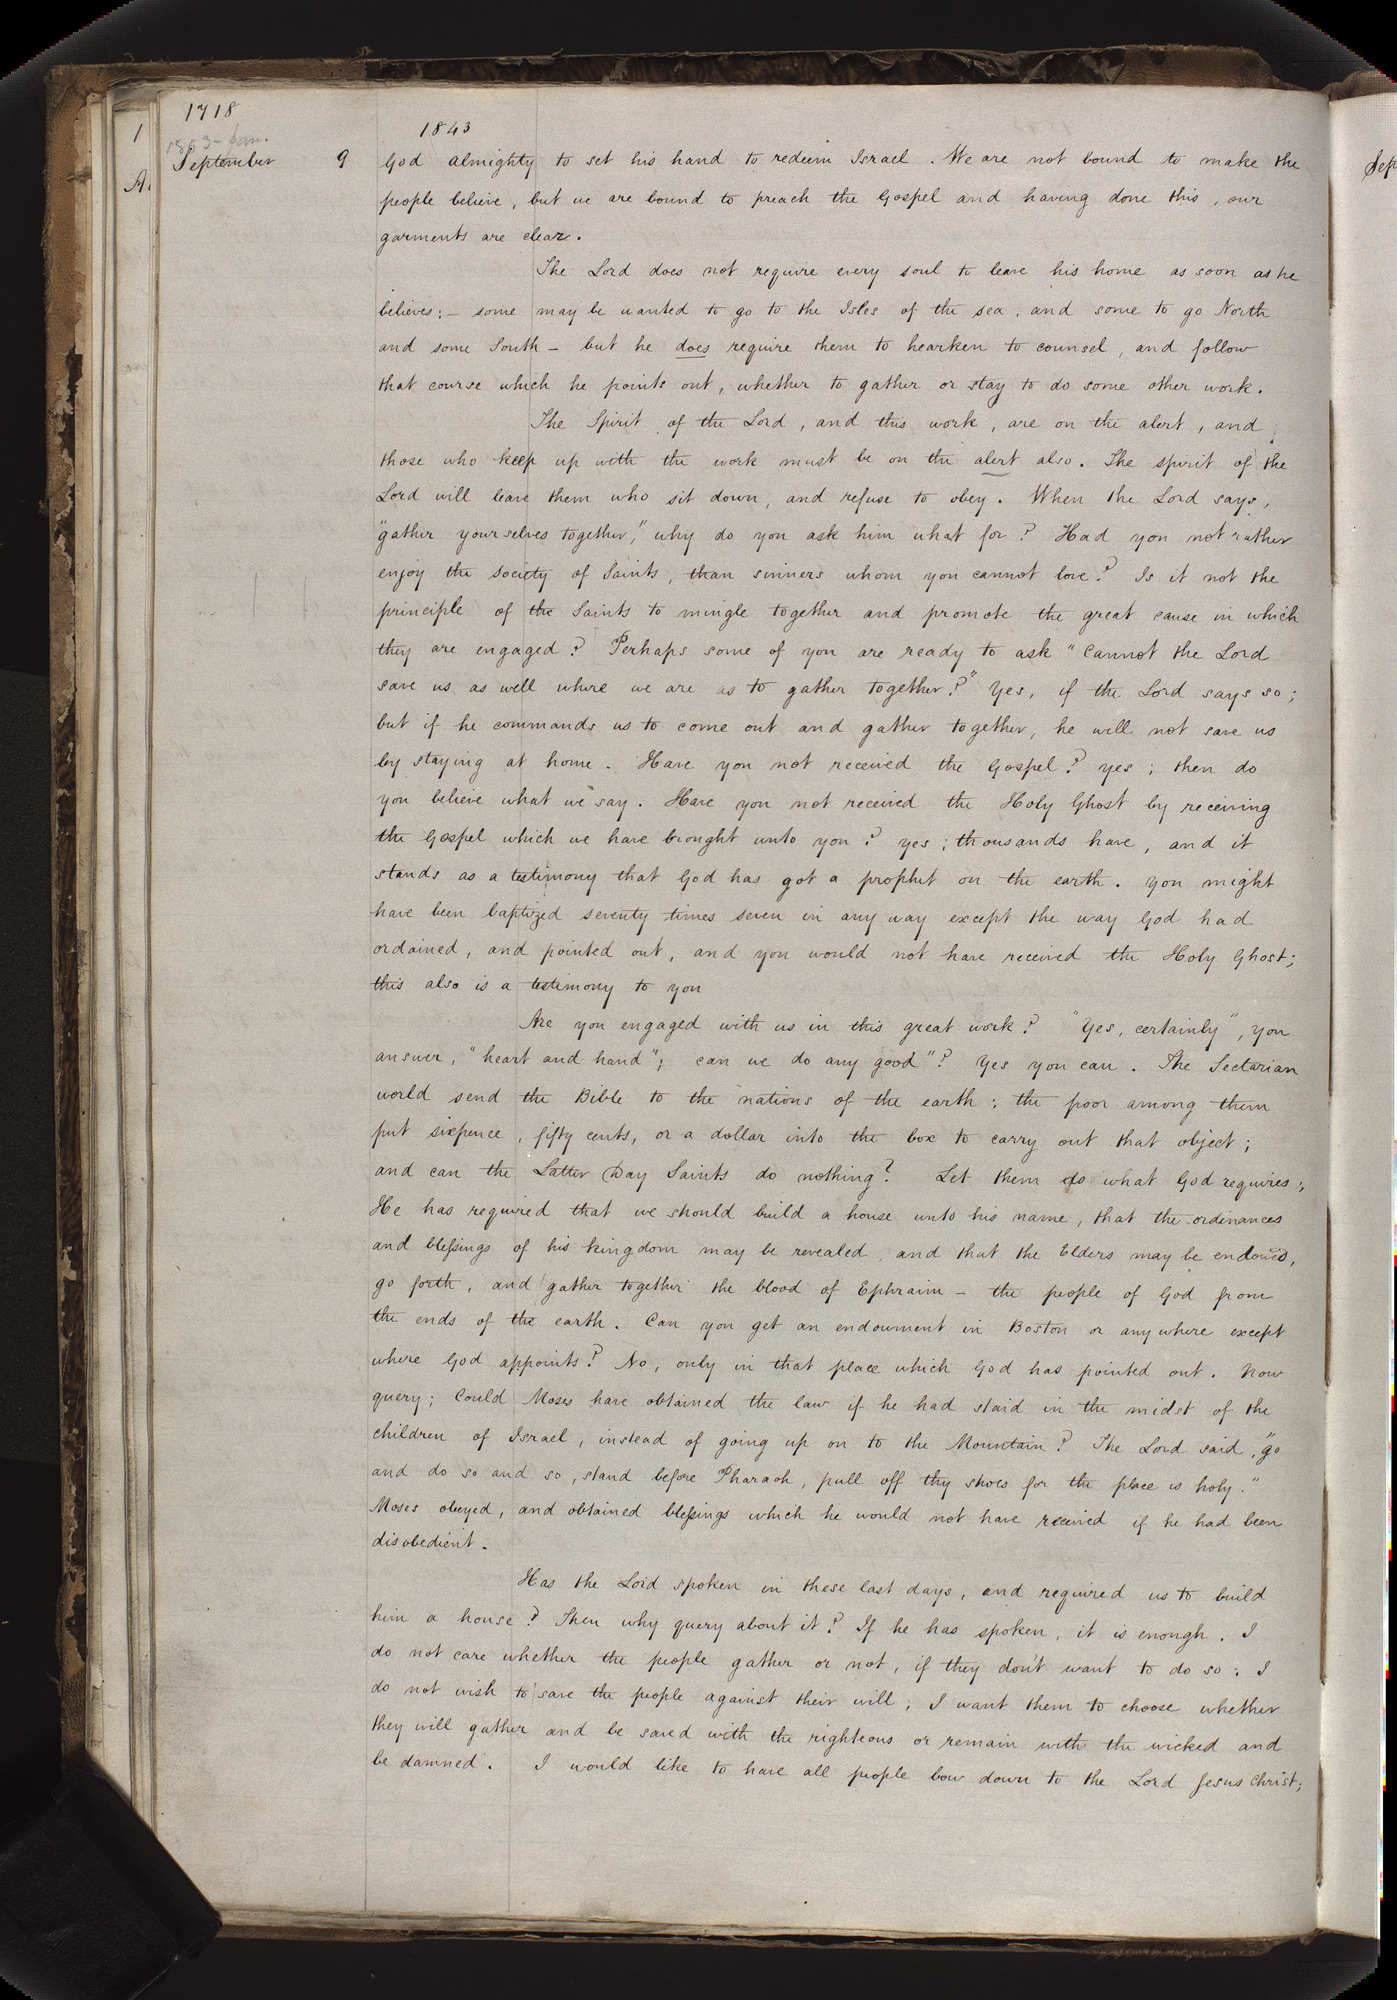 1718
1843
1853-Jan.
September 9 God almighty to set his hand to redeem Israel. We are not bound to make the
people believe, but we are bound to preach the Gospel and having done this, our
garments are clear.
The Lord does not require every soul to leave his home as soon as he
believes:— some may be wanted to go to the Isles of the sea, and some to go North
and some South — but he does require them to hearken to counsel, and follow
that course which he points out, whether to gather or stay to do some other work.
The Spirit of the Lord, and this work, are on the alert, and
those who keep up with the work must be on the alert also. The spirit of the
Lord will leave them who sit down, and refuse to obey. When the Lord says,
"gather yourselves together," why do you ask him what for? Had you not rather
enjoy the society of Saints, than sinners whom you cannot love? Is it not the
principle of the Saints to mingle together and promote the great cause in which
they are engaged? Perhaps some of you are ready to ask "cannot the Lord
save us as well where we are as to gather together?" Yes, if the Lord says so;
but if he commands us to come out and gather together, he will not save us
by staying at home. Have you not received the Gospel? yes; then do
you believe what we say. Have you not received the Holy Ghost by receiving
the Gospel which we have brought unto you? yes; thousands have, and it
stands as a testimony that God has got a prophet on the earth. You might
have been baptized seventy times seven in any way except the way God had
ordained, and pointed out, and you would not have received the Holy Ghost;
this also is a testimony to you
Are you engaged with us in this great work? "Yes, certainly", you
answer, "heart and hand"; can we do any good"? Yes you can. The Sectarian
world send the Bible to the nations of the earth; the poor among them
put sixpence, fifty cents, or a dollar into the box to carry out that object;
and can the Latter Day Saints do nothing? Let them do what God requires;
He has required that we should build a house unto his name, that the ordinances
and blessings of his kingdom may be revealed, and that the Elders may be endowed,
go forth, and gather together the blood of Ephraim — the people of God from
the ends of the earth. Can you get an endowment in Boston or anywhere except
where God appoints? No, only in that place which God has pointed out. Now
query; Could Moses have obtained the law if he had staid in the midst of the
children of Israel, instead of going up on to the Mountain? The Lord said, "go
and do so and so, stand before Pharaoh, pull off thy shoes for the place is holy."
Moses obeyed, and obtained blessings which he would not have received if he had been
disobedient.
Has the Lord spoken in these last days, and required us to build
him a house? Then why query about it? If he has spoken, it is enough. I
do not care whether the people gather or not, if they don't want to do so; I
do not wish to save the people against their will; I want them to choose whether
they will gather and be saved with the righteous or remain with the wicked and
be damned. I would like to have all people bow down to the Lord Jesus Christ;
1
A.
Sep